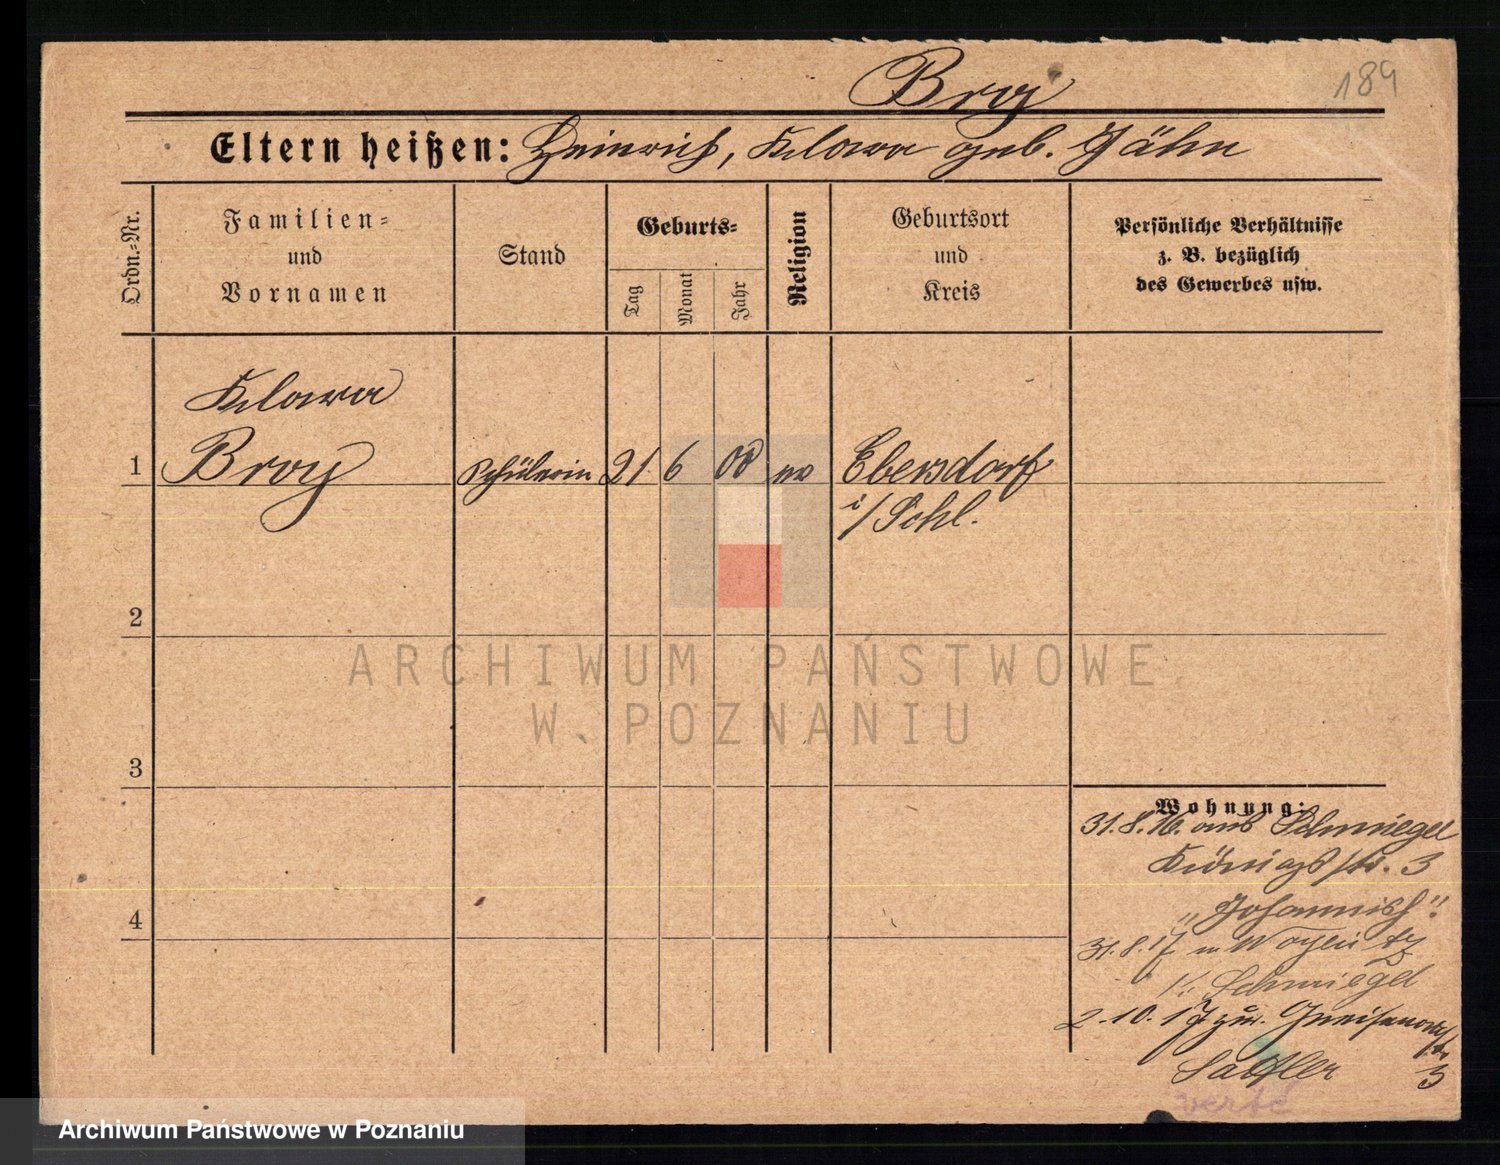 Broy
189
Eltern heißen: Heinrich, Klara geb. Jähn
Ordn.=Nr.
Familien=
und
Vornamen
Stand
Geburts=
Tag
Monat
Jahr
Religion
Geburtsort
und
Kreis
Persönliche Verhältnisse
z. B. bezüglich
des Gewerbes usw.
Klara
1 Broy Schülerin 21. 6 00 ev Ebersdorf
i/Schl.
2
3
4
Wohnung:
31.8.16. aus Schmiegel
Königstr. 3
"Johannisch".
31.8.17 n
Schmiegel
2.10.17 zur. Gneisenaustr.
3
Sattler
verte
ARCHIWUM PAŃSTWOWE
W POZNANIU
Archiwum Państwowe w Poznaniu